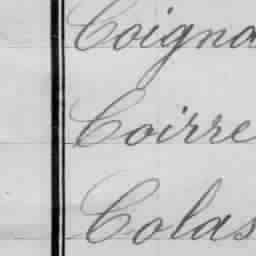 Coigna
Coirre
Colas